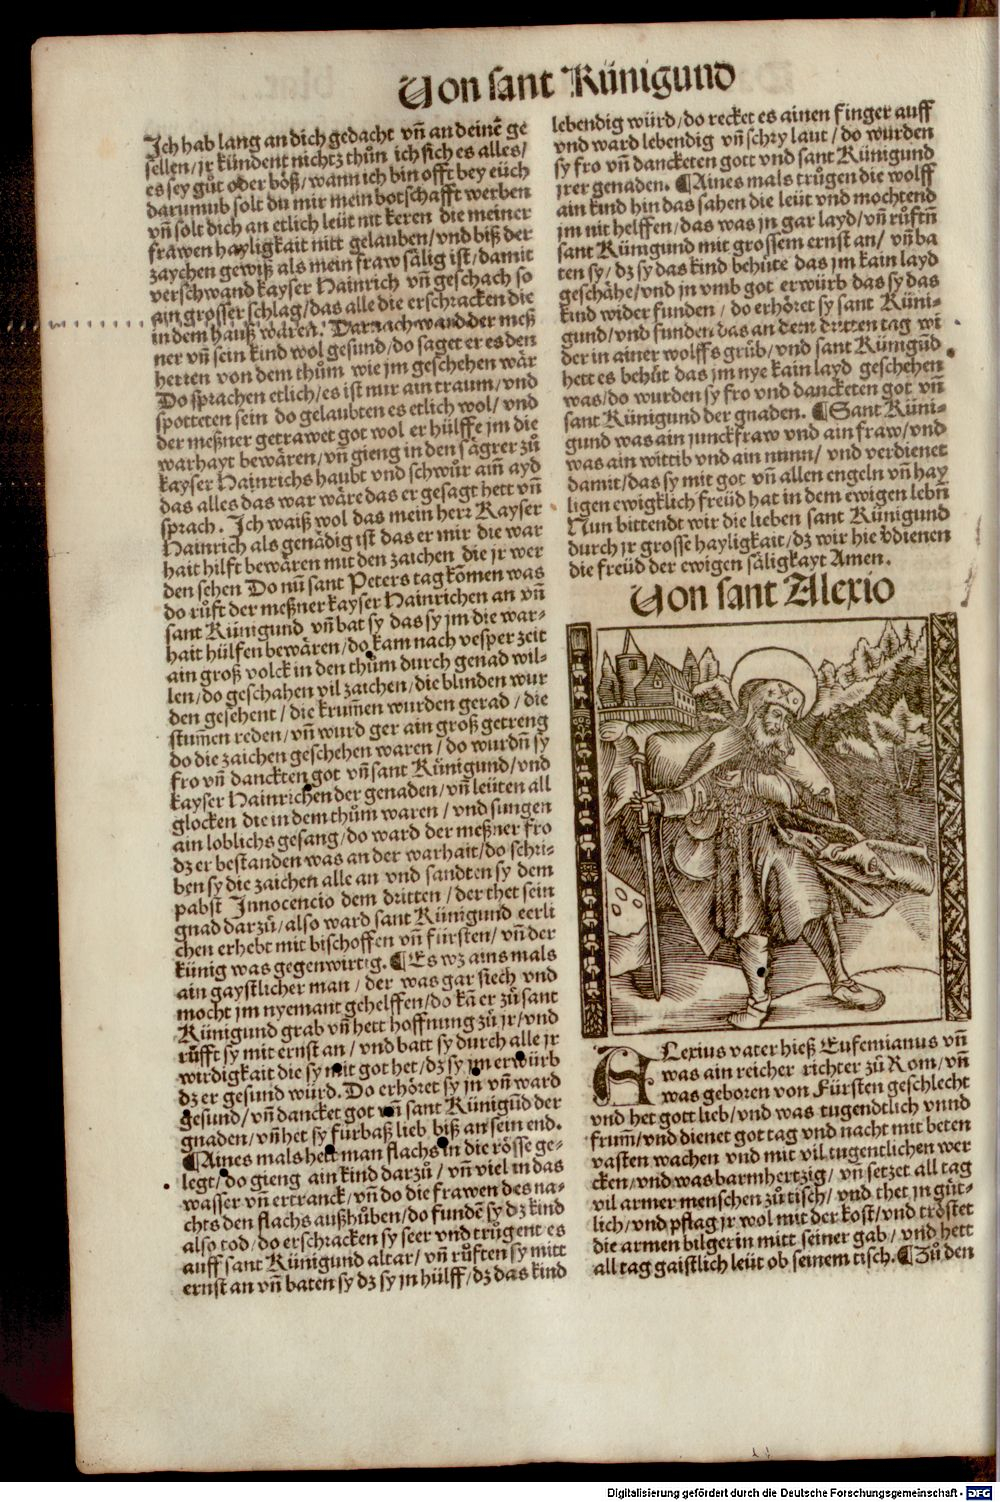 Von sant Künigund
Ich hab lang an dich gedacht vñ an deinẽ ge
sellen/jr kündent nichtz thůn ich sich es alles/
es sey gůt oder böß/wann ich bin offt bey eüch
darumb solt du mir mein botschafft werben
vñ solt dich an etlich leüt nit keren die meiner
frawen hayligkait nitt gelauben/vnd biß der
zaychen gewiß als mein fraw sälig ist/damit
verschwand kayser Hainrich vñ geschach so
ain grosser schlag/das alle die erschracken die
in dem hauß waren. Darnach ward der meß
ner vñ sein kind wol gesund/do saget er es den
herren von dem thům wie jm geschehen wär
Do sprachen etlich/es ist nur ain traum/vnd
spotteten sein do gelaubten es etlich wol/vnd
der meßner getrawet got wol er hülffe jm die
warhayt bewären/vñ gieng in den sägrer zů
kayser Hainrichs haubt vnd schwůr aiñ ayd
das alles das war wäre das er gesagt hett vñ
sprach. Ich waiß wol das mein herr Kayser
Hainrich als genädig ist das er mir die war
hait hilft bewären mit den zaichen die jr wer
den sehen Do nũ sant Peters tag kõmen was
do růft der meßner kayser Hainrichen an vñ
sant Künigund vñ bat sy das sy jm die war-
hait hülfen bewären/do kam nach vesper zeit
ain groß volck in den thům durch genad wil-
len/do geschahen vil zaichen/die blinden wur
den gesehent/die krum̃en wurden gerad/die
stum̃en reden/vñ wurd ger ain groß getreng
do die zaichen geschehen waren/do wurdñ sy
fro vñ danckten got vñ sant Künigund/vnd
kayser Hainrichen der genaden/vñ leüten all
glocken die in dem thům waren/vnd sungen
ain loblichs gesang/do ward der meßner fro
dz er bestanden was an der warhait/do schri-
ben sy die zaichen alle an vnd sandten sy dem
pabst Innocencio dem dritten/der thet sein
gnad darzů/also ward sant Künigund eerli
chen erhebt mit bischoffen vñ fürsten/vñ der
künig was gegenwirtig. ¶Es wz ains mals
ain gaystlicher man/der was gar siech vnd
mocht jm nyemant gehelffen/do kã er zů sant
Künigund grab vñ hett hoffnung zů jr/vnd
růfft sy mit ernst an/vnd batt sy durch alle jr
wirdigkait die sy mit got het/dz sy jm erwürb
dz er gesund würd. Do erhöret sy jn vñ ward
gesund/vñ dancket got vñ sant Künigũd der
gnaden/vñ het sy fürbaß lieb biß an sein end.
¶Aines mals hett man flachs in die rösse ge-
legt/do gieng ain kind darzů/vñ viel in das
wasser vñ ertranck/vñ do die frawen des na-
chts den flachs außhůben/do fundẽ sy dz kind
also tod/do erschracken sy seer vnd trůgent es
auff sant Künigund altar/vñ růften sy mitt
ernst an vñ baten sy dz sy jn hülff/dz das kind
lebendig würd/do recket es ainen finger auff
vnd ward lebendig vñ schry laut/do wurden
sy fro vñ danckten gott vnd sant Künigund
jrer genaden. ¶Aines mals trůgen die wolff
ain kind hin das sahen die leüt vnd mochtend
jm nit helffen/das was jn gar layd/vñ růftñ
sant Künigund mit grossem ernst an/vñ ba
ten sy/dz sy das kind behüte das jm kain layd
geschähe/vnd jn vmb got erwürb das sy das
kind wider funden/do erhöret sy sant Küni-
gund/vnd funden das an dem dritten tag wi
der in ainer wolffs grůb/vnd sant Künigũd
hett es behüt das jm nye kain layd geschehen
was/do wurden sy fro vnd dancketen got vñ
sant Künigund der gnaden. ¶Sant Küni-
gund was ain junckfraw vnd ain fraw/vnd
was ain wittib vnd ain nunn/vnd verdienet
damit/das sy mit got vñ allen engeln vñ hay
ligen ewigklich freüd hat in dem ewigen lebñ
Nun bittendt wir die lieben sant Künigund
durch jr grosse hayligkait/dz wir hie vdienen
die freüd der ewigen säligkayt Amen.
Von sant Alexio
ALexius vater hieß Eufemianus vñ
was ain reicher richter zů Rom/vñ
was geboren von Fürsten geschlecht
vnd het gott lieb/vnd was tugendtlich vnnd
frum̃/vnd dienet got tag vnd nacht mit beten
vasten wachen vnd mit vil tugentlichen wer
cken/vnd was barmhertzig/vñ setzet all tag
vil armer menschen zů tisch/vnd thet jn güt-
lich/vnd pflag jr wol mit der kost/vnd tröstet
die armen bilgerin mitt seiner gab/vnd hett
all tag gaistlich leüt ob seinem tisch. ¶Zů den
Digitalisierung gefördert durch die Deutsche Forschungsgemeinschaft - DFG